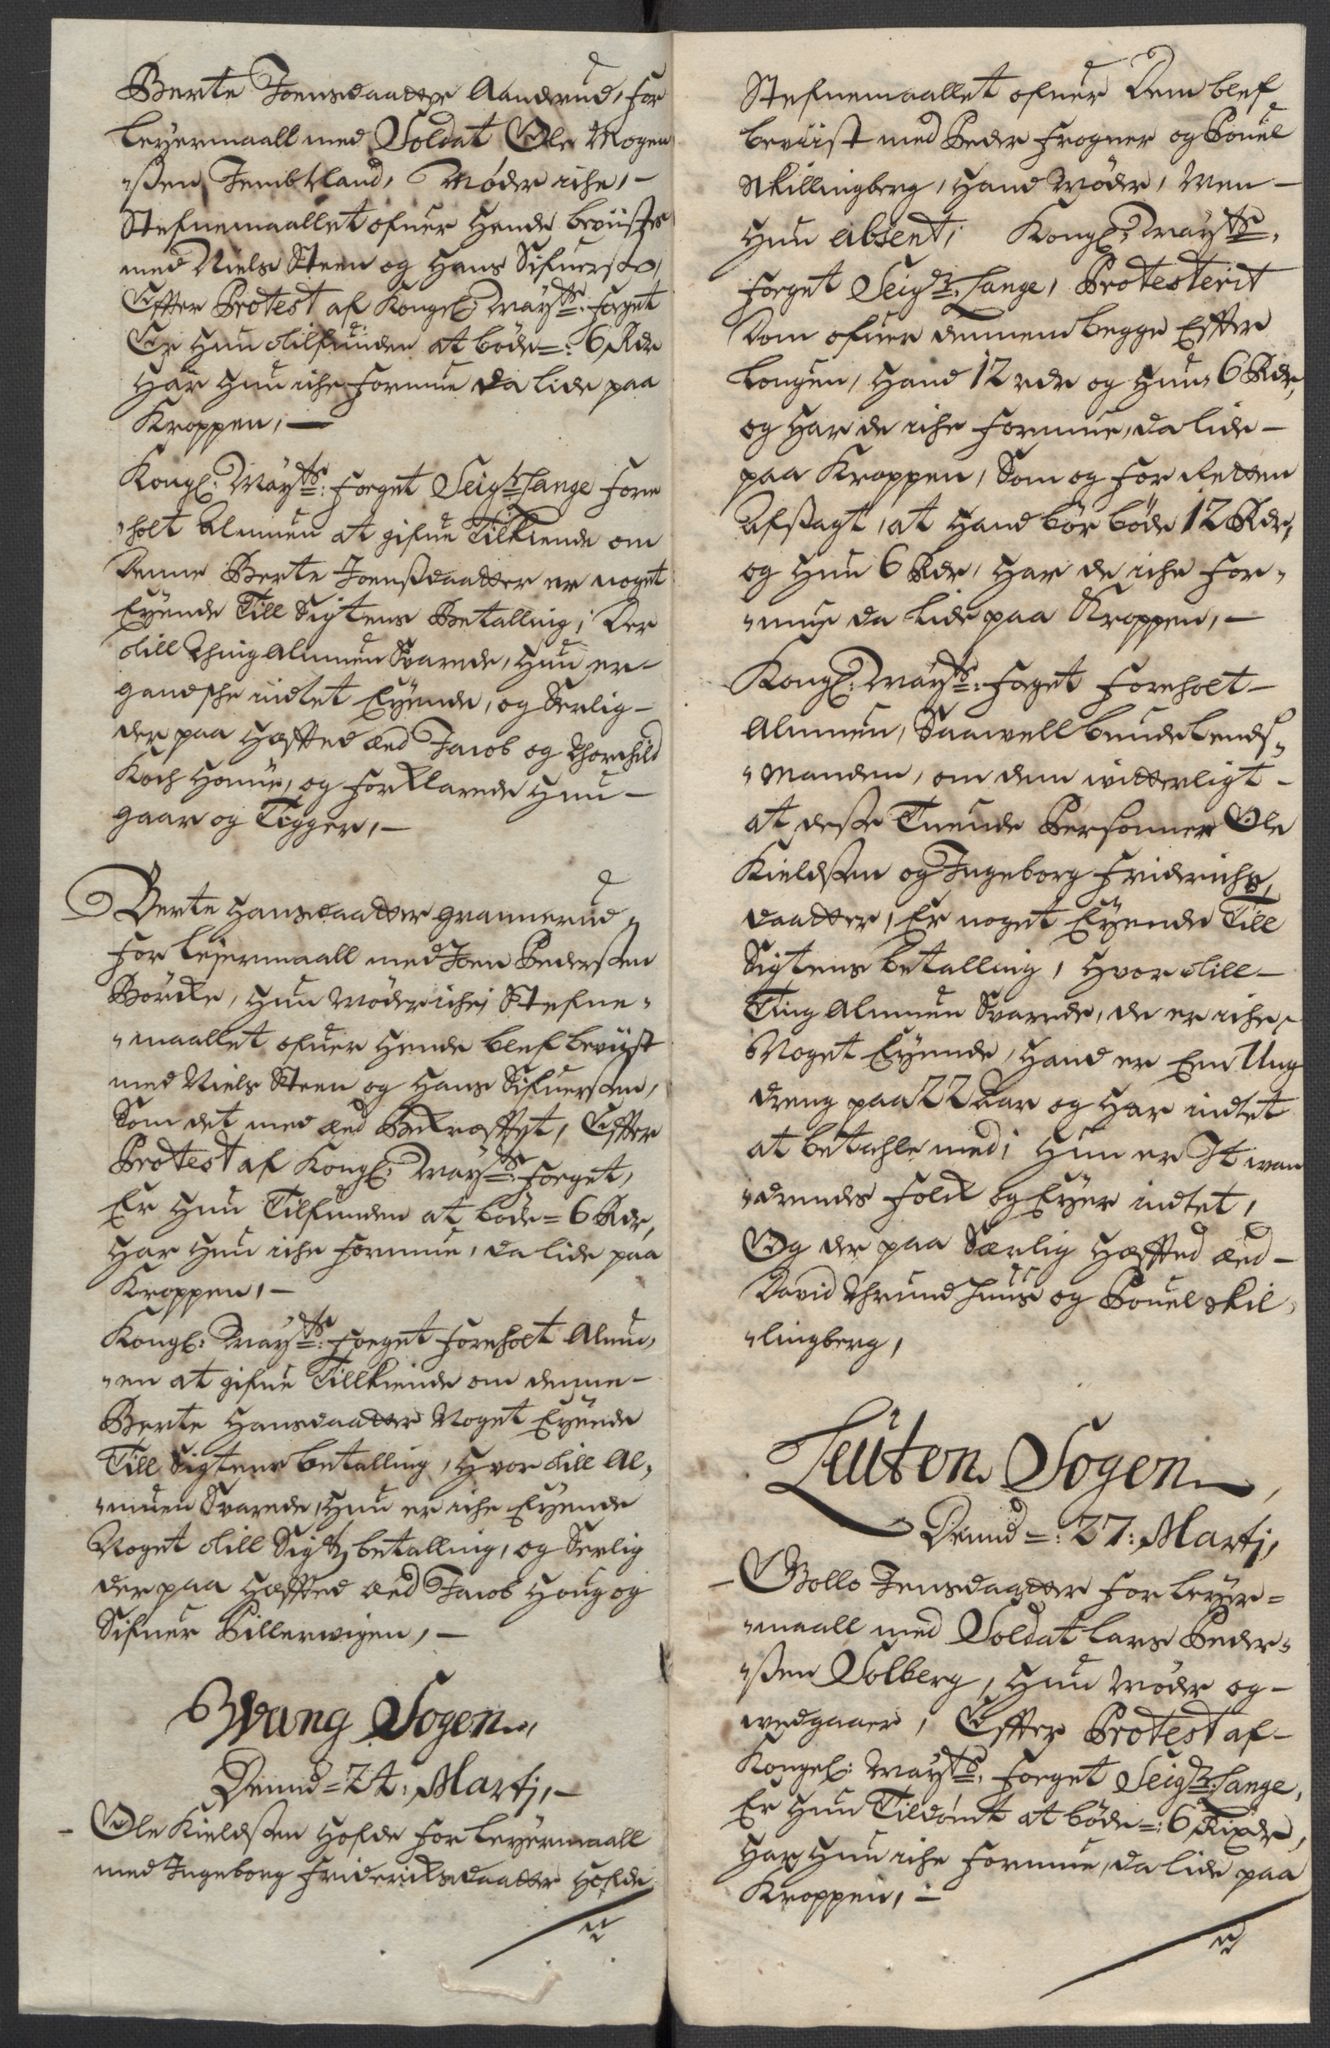 Berte Joensdaatter Aanderud, for
Leyermaall med Soldat Ole Mogen
"ssen Jembtland, Møder iche, –
Stefnemaallet ofuer Hende beviistes
med Niels Steen og Hans Sifuerss:
Effter Protest af Kongel: Maytts: foget
Er Hun tilfunden at bøde =: 6 Rdr
Har Hun iche formue da lide paa
Kroppen, –
Kongl: Maytts: foget Seigr Lange fore
"holt Almuen at gifue Tilkiende om
Denne Berte Joenssdaatter er noget
Eyende Till Sigtens Betalling; Der
till Thing Almuen Svarede, Hun er –
gandsche indtet Eyende, og Serlig –
der paa Hæffted æed Jacob og Thorchild
Koch Homb, og forklarede Hun –
gaar og Tigger, –
Berte Hansdaatter Grannerud,
for Leyermaall med Joen Pederssen
Börcke, Hun Møder iche, Stefne"
"maallet ofuer Hende blef beviist
med Niels Steen og Hans Sifuerssen,
Som det med æed Bekræfftet, Effter
Protest af Kongel: Maytts: foget,
Er Hun Tilfunden at bøde = 6 Rdr,
Har Hun iche formue, da lide paa
Kroppen, –
Kongl: Maytts: foget foreholt Almu,
"en at gifue Tillkiende om denne –
Berte Hansdaatter Noget Eyende
Till Sigtens betalling, Hvor till Al,
"muen Svarede, Hun er iche Eyende
Noget till Sigtz betalling, og Serlig
der paa Hæfted æed Jacob Houg og
Sifuer Pillerwigen, –
Wang Sogen,
Dennd = 24: Martj, –
– Ole Kieldssen Hofde for Leyermaall
med Ingeborg Fridericksdaatter Hofde
Stefnemaallet ofuer Dem blef
beviist med Peder Frogner og Pouel
Skillingberg, Hand Møder, Men –
Hun absent; Kongl: Maytts:
foget Seigr: Lange, Protesterit
Dom ofuer dennem begge Effter
Lougen, Hand 12 rdr og Hun 6 Rdr,
og Har de iche formue, da lide –
paa Kroppen, Som og for Retten
Afsagt, at Hand bør bøde 12 Rdr,
og Hun 6 Rdr, Har de iche for"
"mue da lide paa Kroppen, –
Kongl: Maytts: foget foreholt –
Almuen, Saawell bunde Lends"
"manden, om dem witterligt –
at desse Tuende Personner Ole
Kieldssen og Ingeborg Friderichs
daatter, Er noget Eyende Till
Sigtens betalling, Hvor till –
Ting Almuen Svarede, de er iche –
Noget Eyende, Hand er Een Ung
dreng paa 22 Aar og Har indtet
at betahle med; Hun er It wan
"drendes Folck og Eyer indtet,
Og der paa Særlig Hæffted æed –
David Thrundhuus og Pouel Skil"
"lingberg,
Leuten Sogen,
Dennd =: 27: Martj,
– Gollo Jensdaatter for Leyer =
"maall med Soldat Lars Peder"
"ssen Solberg, Hun Møder og –
wedgaaer, Effter Protest af –
Kongel: Maytts: foget Seigr: Lange,
Er Hun Tildømt at bøde =: 6 Rixdr,
Har Hun iche formue, da lide paa
Kroppen, –